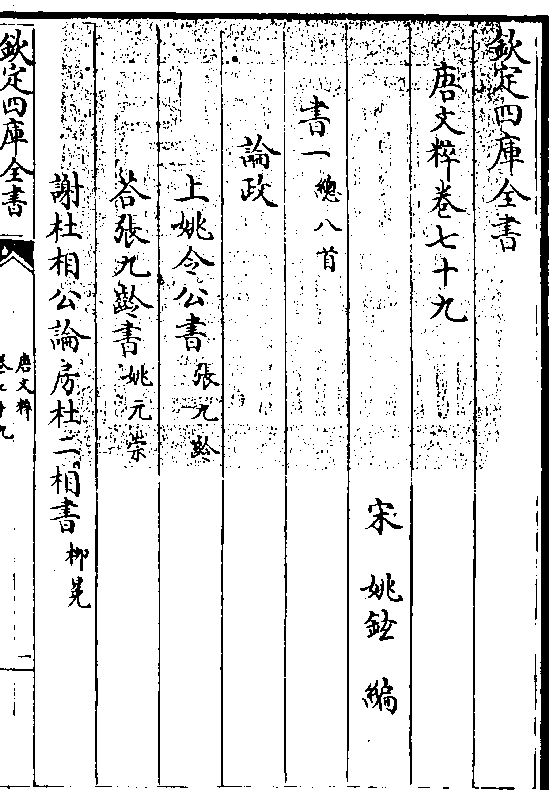 欽定四庫全書
唐文粹卷七十九
宋 姚鉉 編
書一 總八首
論政
上姚令公書 張九齡
荅張九齡書 姚元崇
謝杜相公論房杜二相書 柳冕
欽定四庫全書
唐文粹
卷七十九
一